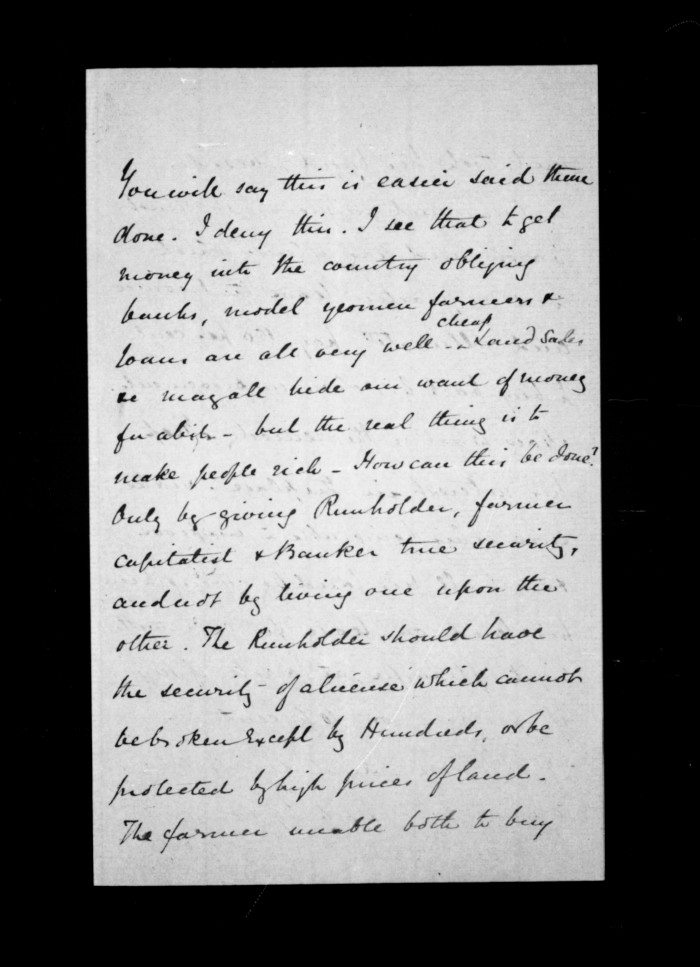 You will say this is easier said than
done. I deny this. I see that to get
money into the country obliging
banks, model yeomen farmers &
loans are all very well - cheap Land Sales
&c may all hide our want of money
for a bit - but the real thing is to
make people rich - How can this be done?
Only by giving Runholder, farmer
capitalist & Banker true security,
and not by living one upon the
other. The Runholder should have
the security of a license which cannot
be broken Except by Hundreds, or be
protected by high prices of land.
The farmer unable both to buy